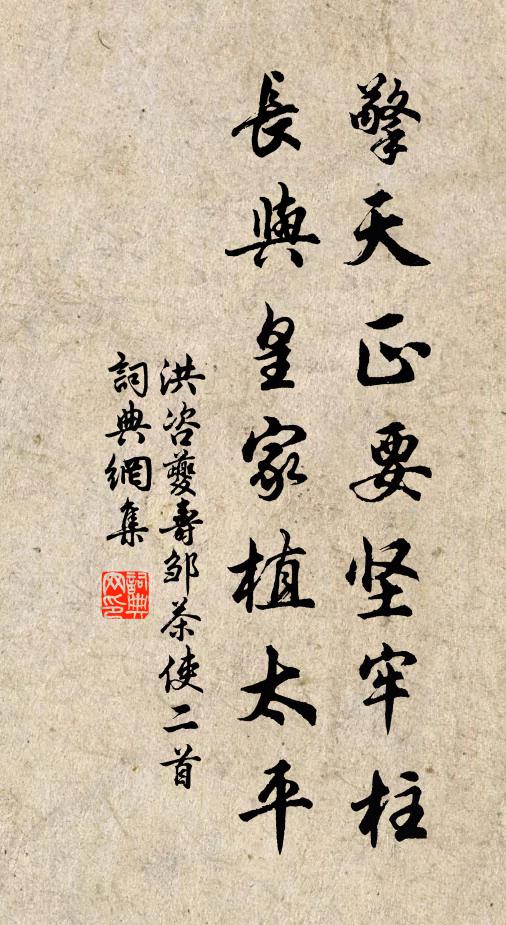 擎天正要坚牢柱
長與皇家植太平
洪咨夔壽邹茶使二首
詞典網集
詞典网印